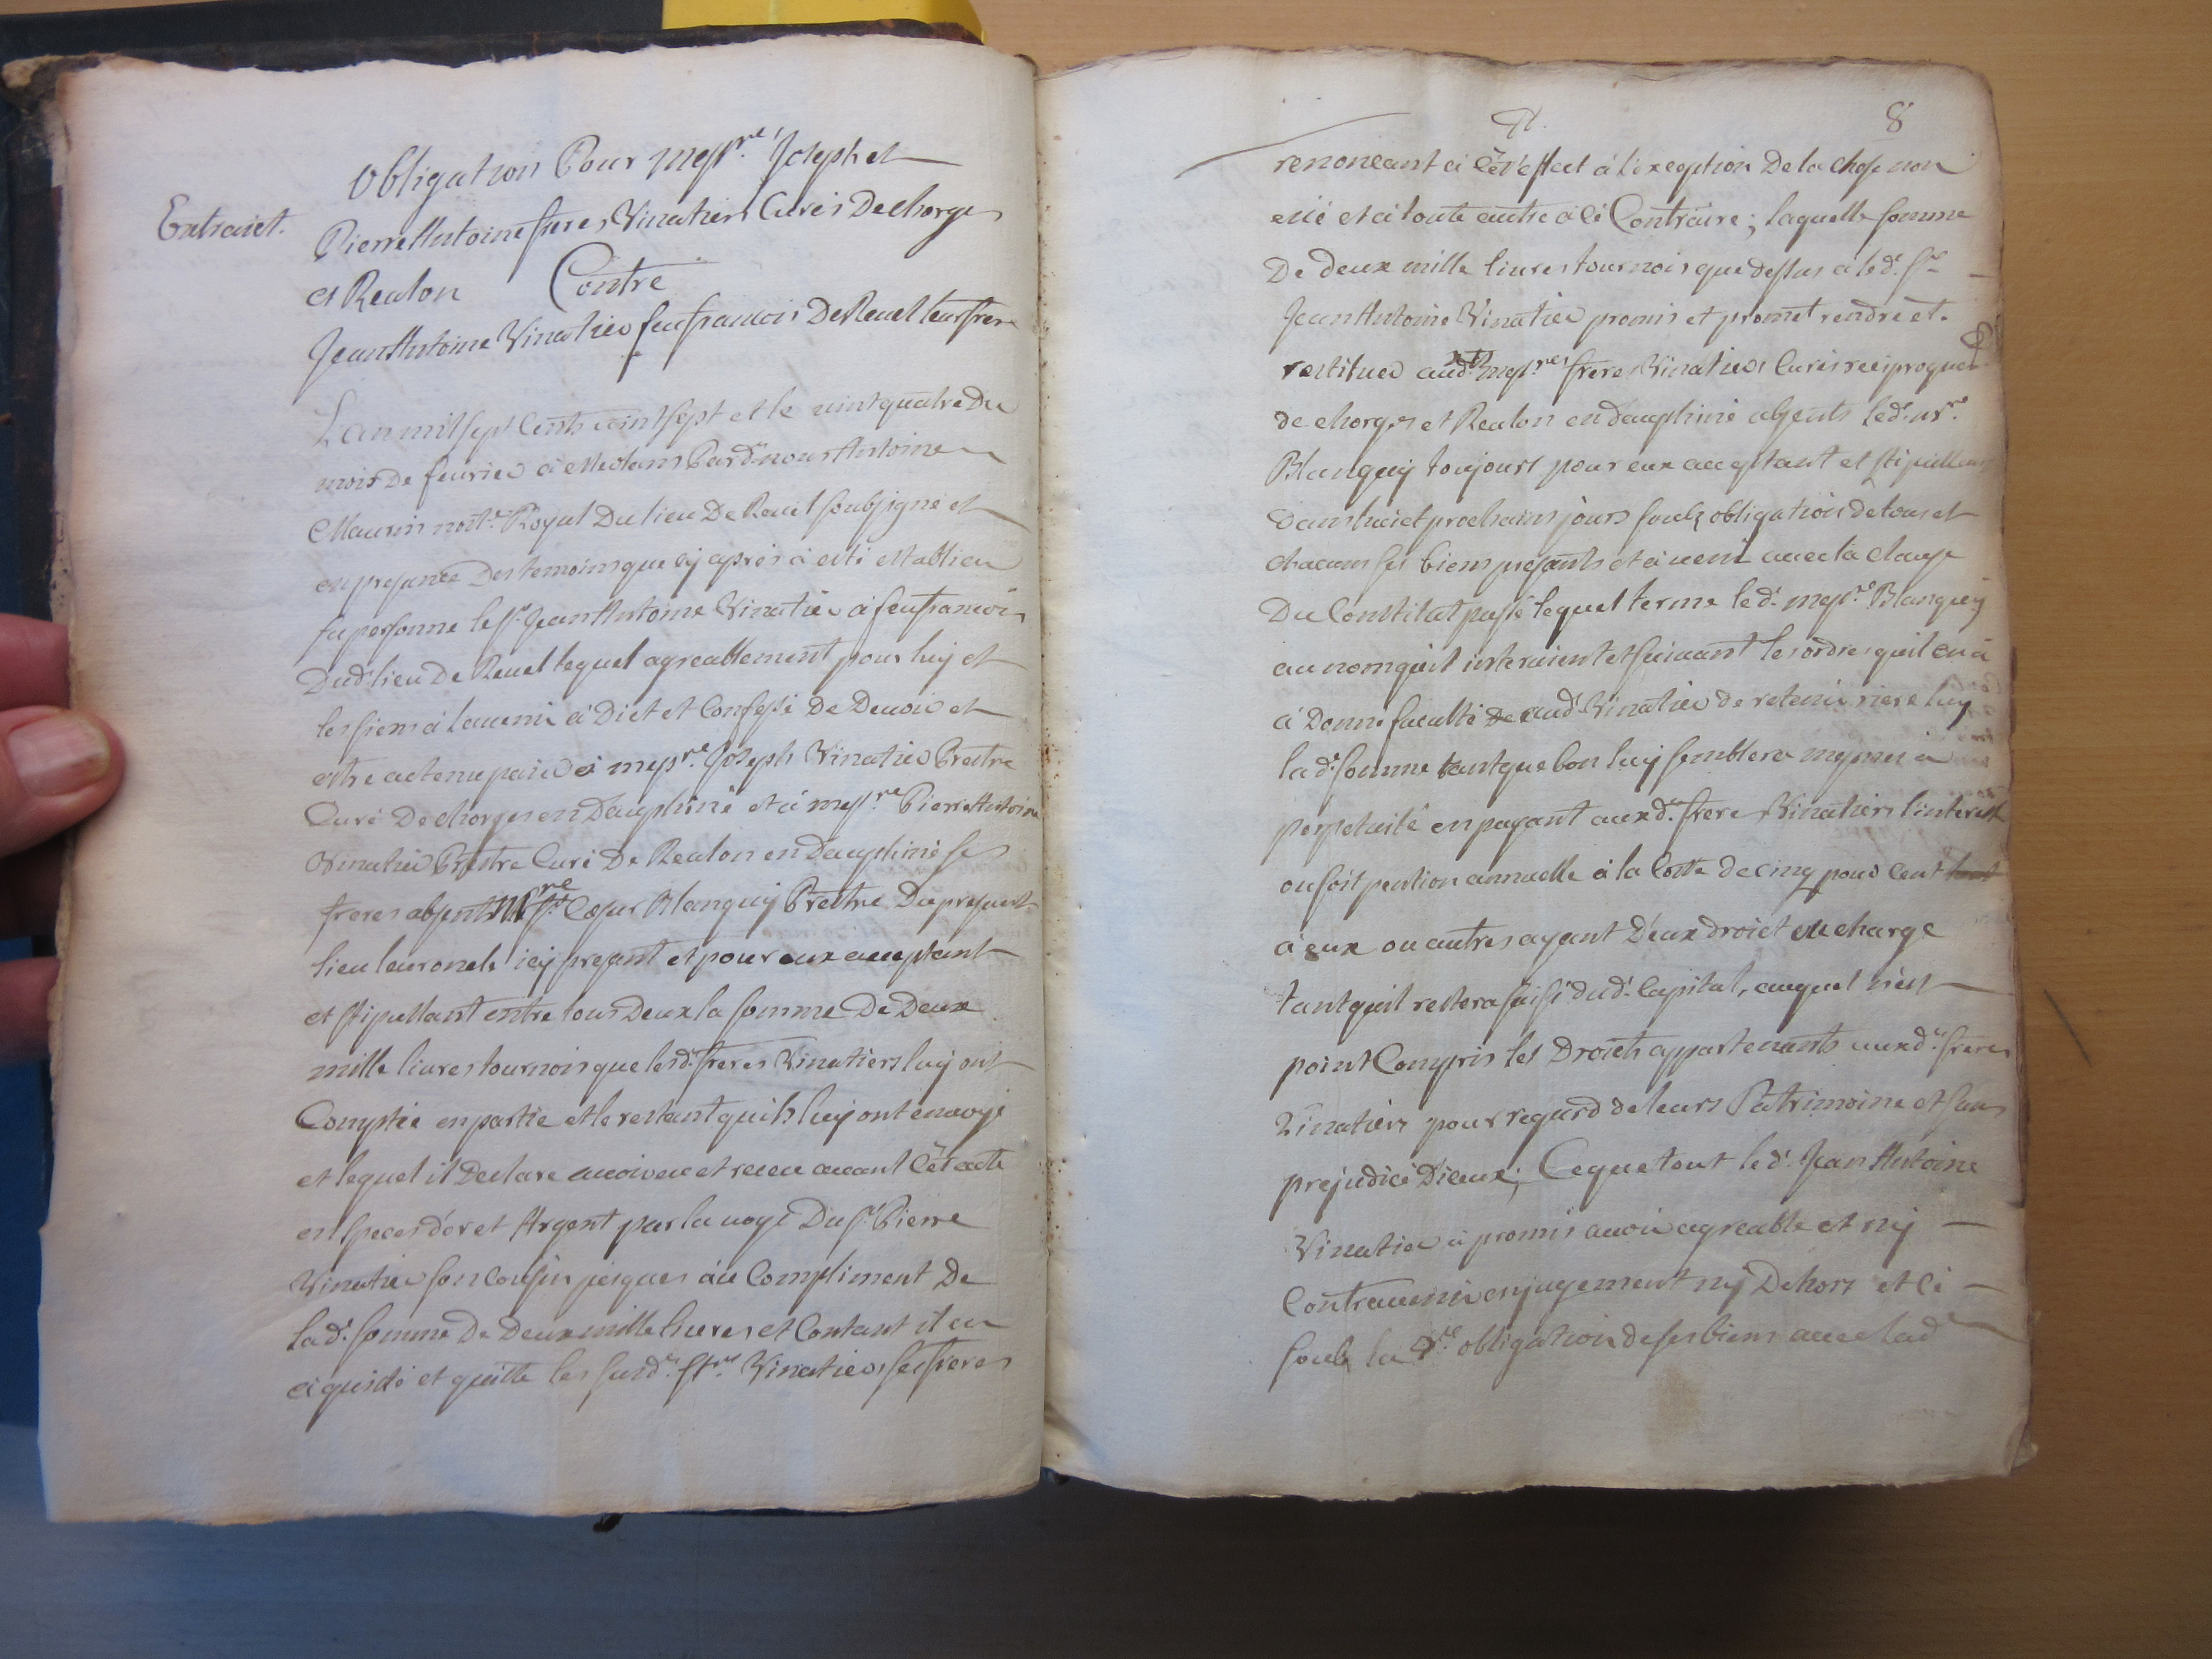 Obligation Pour messre. Joseph et
Extraict.
Pierre Antoine freres Vinatiers Curés De chorges
et Realon Contre
Jean Antoine Vinatier feu francois De Reuel leur frere
L'an mil sept Cents vint sept et le vint quatre Du
mois De feurier à Meolans Pard. nous Antoine
Maurin nore. Royal Du lieu De Reuel soubsigné et
en presance Des temoins que cy apres à esté establi en
sa personne le sr. Jean Antoine Vinatier à feu francois
Dud. lieu De Reuel lequel agreablement pour luy et
les siens à lauenir à Dict et Confessé De Deuoir et
estre à messre. Joseph Vinatier Prestre
Curé De chorges en Dauphiné et à messre. Pierre Antoine
Vinatier Prestre Curé De Realon en Dauphiné ses
freres absents Mre Cæsar Blanquy Prestre Du present
lieu leur oncle icy present et pour eux acceptant
et stipullant entre tous Deux la somme De Deux
mille liures tournois que lesd. freres Vinatiers luy ont
Comptée en partie et le restant quils luy ont enuoyé
et lequel il Declare auoir eu et receu auant cet acte
en speces d'or et Argent par la uoye Du sr. Pierre
Vinatier son Cousin jusques au Compliment De
lad. somme De Deux mille liures et Contant il en
à quicté et quitte les susd. Vinatiers ses freres
8
renoncant à cet effect à l'exception De la chose non
et à toute autre à ce Contraire; laquelle somme
De Deux mille liures tournois que dessus à led. sr.
Jean Antoine Vinatier promis et promet rendre et
restituer auxd. messres. freres Vinatiers Curés reciproques
de chorges et Realon en Dauphiné absents led. mre.
Blanquy toujours pour eux acceptant et stipullant
Dans huict prochains jours soubz obligation de tous et
chacuns ses biens presants et à uenir auec la clause
Du Constitut passé lequel terme led. messre. Blanquy
au nom quil interuient et suiuant les ordres quil en à
à Donné faculté aud. Vinatier de retenir riere luy
lad. somme tant que bon luy semblera mesmes à
perpetuité en payant auxd. frere Vinatiers l'interest
ou soit pention annuelle à la Cotte de cinq pour Cent
à eux ou autres ayant D'eux droict ou charge
tant quil restera saisi dud. Capital, auquel n'est
point Compris les Droicts appartenants auxd. freres
Vinatiers pour regard de leurs Patrimoine et sans
prejudice Diceux; Ce que tout led. Jean Antoine
Vinatier à promis auoir agreable et ny
Contreuenir en jugement ny Dehors et ce
soubz la obligation de ses biens auec lad